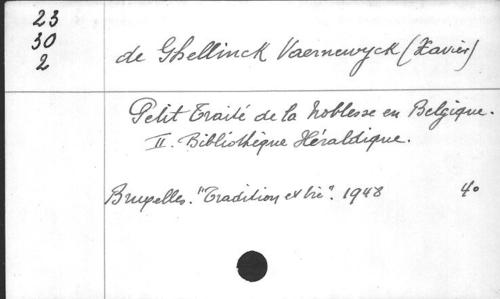 23
30
2
de Ghellinck Vaernewyck (Xavier)
Petit Traité de la Noblesse en Belgique.
II. Bibliothèque Héraldique.
Bruxelles. "Tradition et Vie". 1948 4o